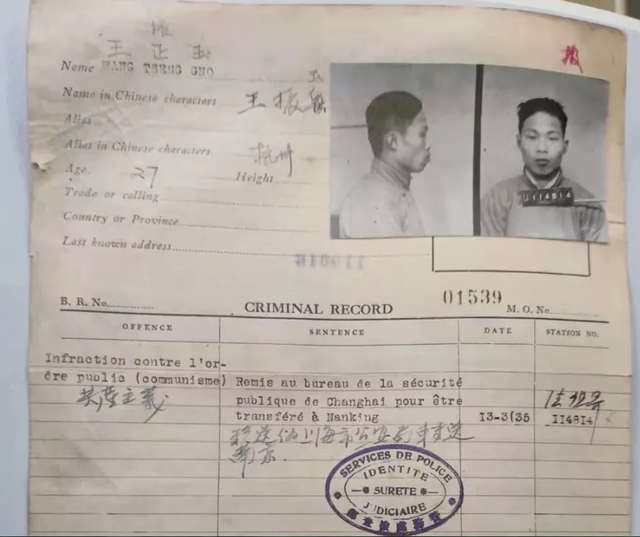 王 正 玉
Name WANG TSENG GHO
Name in Chinese characters 王 振
Alias
Alias in Chinese characters 杭州
Age 27 Height
Trade or calling
Country or Province
Last known address
114814
B. R. No. CRIMINAL RECORD 01539 M. O. No.
OFFENCE SENTENCE DATE STATION NO.
Infraction contre l'or-
dre public (communisme) Remis au bureau de la sécurité
共產主義 publique de Changhai pour être
transféré à Nanking 13-3(35 114814
移送 上海市公安局 送
南京.
SERVICES DE POLICE
IDENTITE
SURETE
JUDICIAIRE